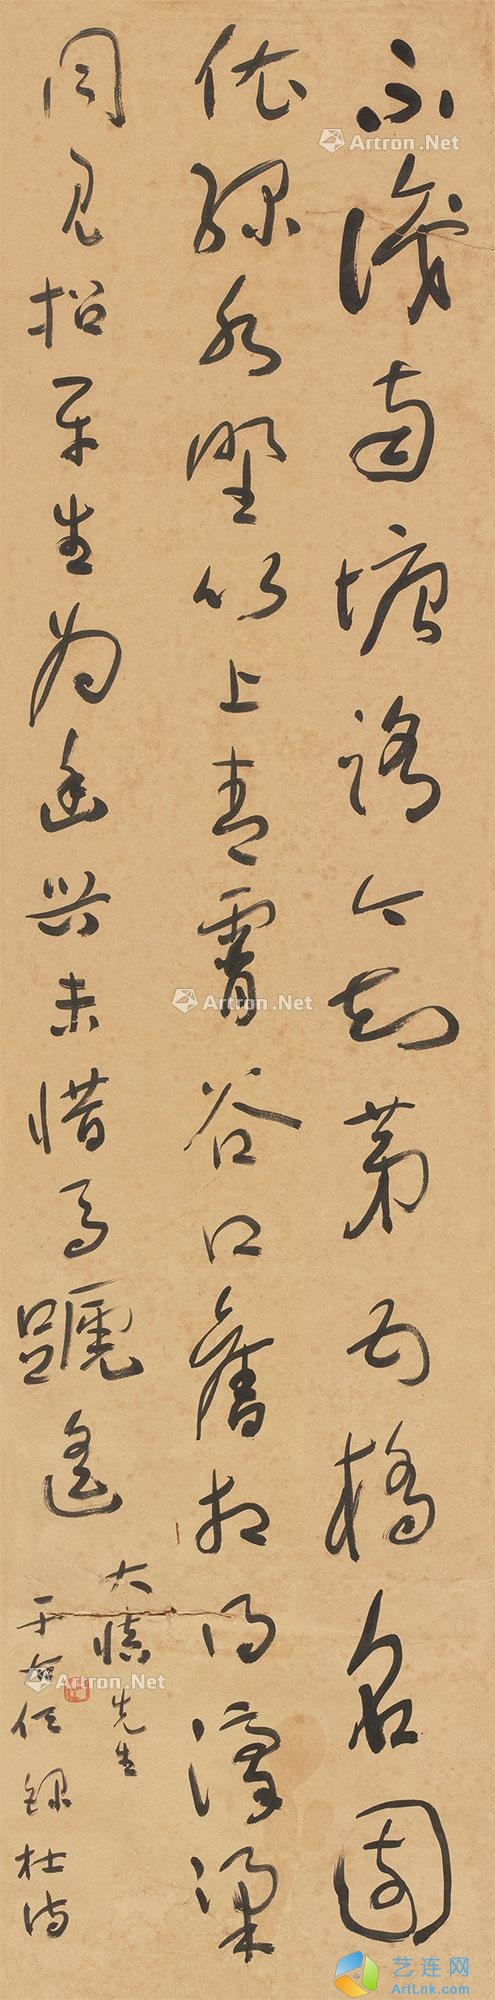 不識南塘路今知第五橋名園
依綠水野竹上青霄谷口舊相得濠梁
同見招平生為幽興未惜馬蹄遙
大慎先生
于右任錄杜詩
Artron.Net
Artron.Net
Artron.Net
Artron.Net
Artron.Net
Artron.Net
艺连网
ArtLnk.com